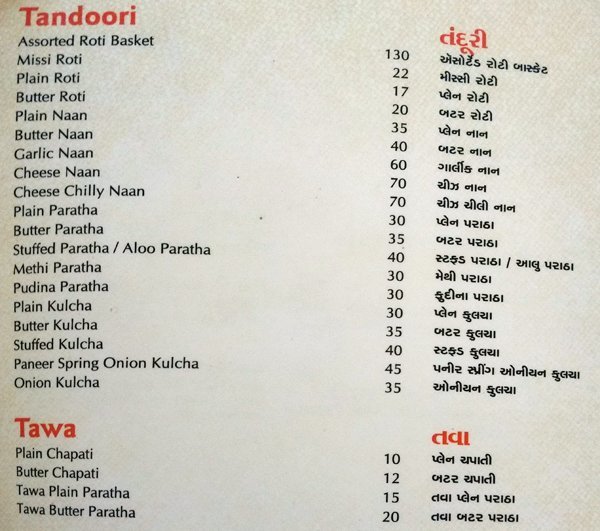 Tandoori તંદૂરી
Assorted Roti Basket 130 એસોર્ટેડ રોટી બાસ્કેટ
Missi Roti 22 મીસ્સી રોટી
Plain Roti 17 પ્લેન રોટી
Butter Roti 20 બટર રોટી
Plain Naan 35 પ્લેન નાન
Butter Naan 40 બટર નાન
Garlic Naan 60 ગાર્લીક નાન
Cheese Naan 70 ચીઝ નાન
Cheese Chilly Naan 70 ચીઝ ચીલી નાન
Plain Paratha 30 પ્લેન પરાઠા
Butter Paratha 35 બટર પરાઠા
Stuffed Paratha / Aloo Paratha 40 સ્ટફડ પરાઠા / આલુ પરાઠા
Methi Paratha 30 મેથી પરાઠા
Pudina Paratha 30 ફુદીના પરાઠા
Plain Kulcha 30 પ્લેન કુલચા
Butter Kulcha 35 બટર કુલચા
Stuffed Kulcha 40 સ્ટફડ કુલચા
Paneer Spring Onion Kulcha 45 પનીર સ્પ્રીંગ ઓનીયન કુલચા
Onion Kulcha 35 ઓનીયન કુલચા
Tawa તવા
Plain Chapati 10 પ્લેન ચપાતી
Butter Chapati 12 બટર ચપાતી
Tawa Plain Paratha 15 તવા પ્લેન પરાઠા
Tawa Butter Paratha 20 તવા બટર પરાઠા